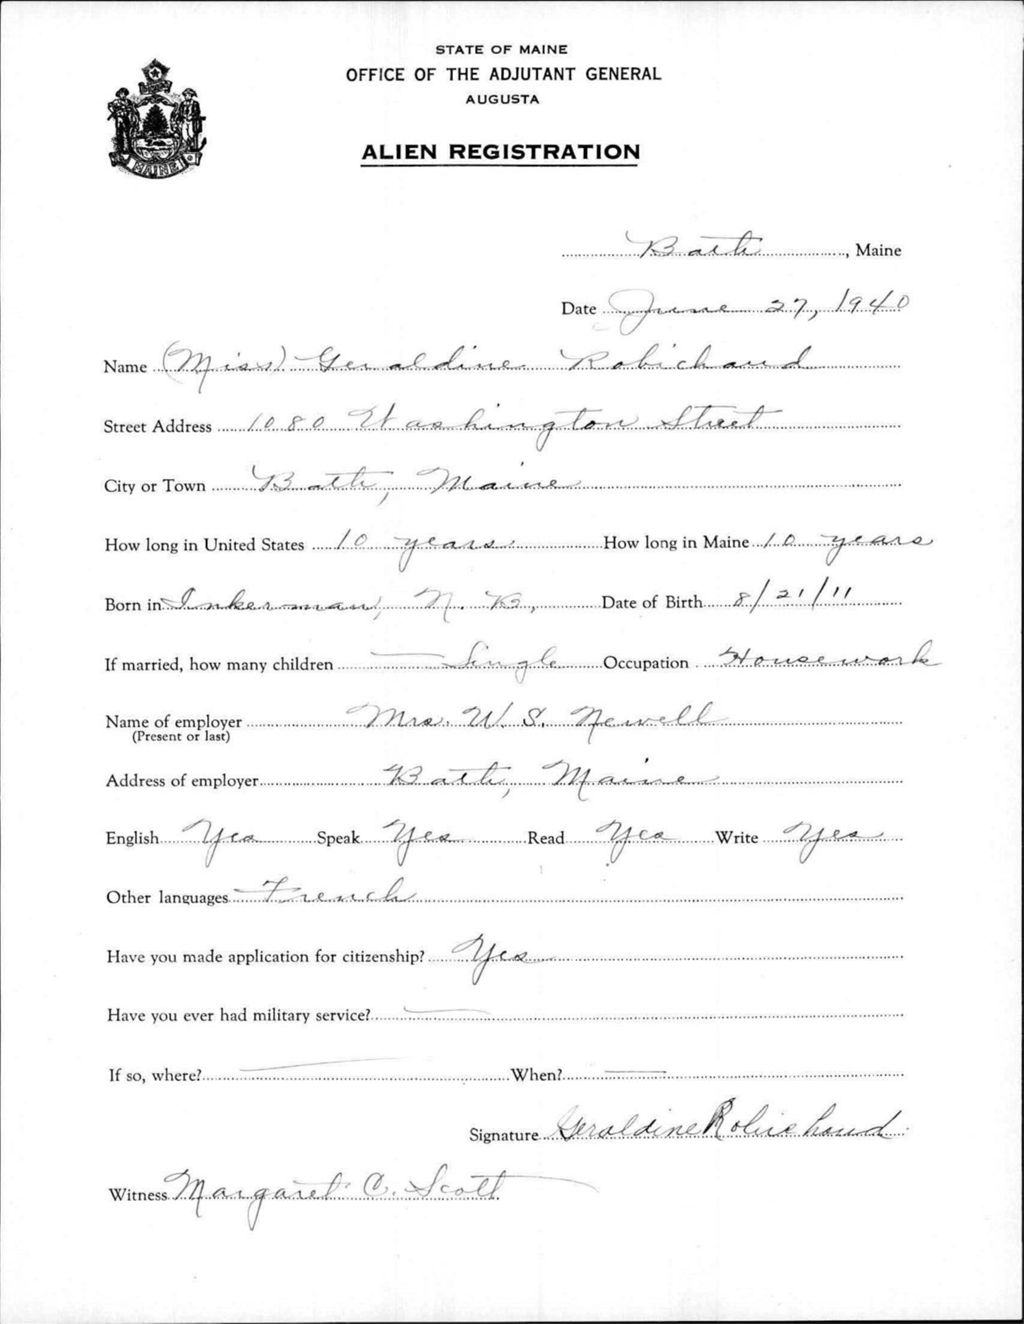 STATE OF MAINE
OFFICE OF THE ADJUTANT GENERAL
AUGUSTA
ALIEN REGISTRATION
MAINE
Bath, Maine
Date June 27, 1940
Name (Miss) Geraldine Robichaud
Street Address 1080 Washington Street
City or Town Bath, Maine
How long in United States 10 years How long in Maine 10 years
Born in Inkerman, N. B., Date of Birth 8/21/11
If married, how many children — Single Occupation Housework
Name of employer Mrs. W. S. Newell
(Present or last)
Address of employer Bath, Maine
English Yes Speak Yes Read Yes Write Yes
Other languages French
Have you made application for citizenship? Yes
Have you ever had military service? —
If so, where? — When? —
Signature Geraldine Robichaud
Witness Margaret C. Scott